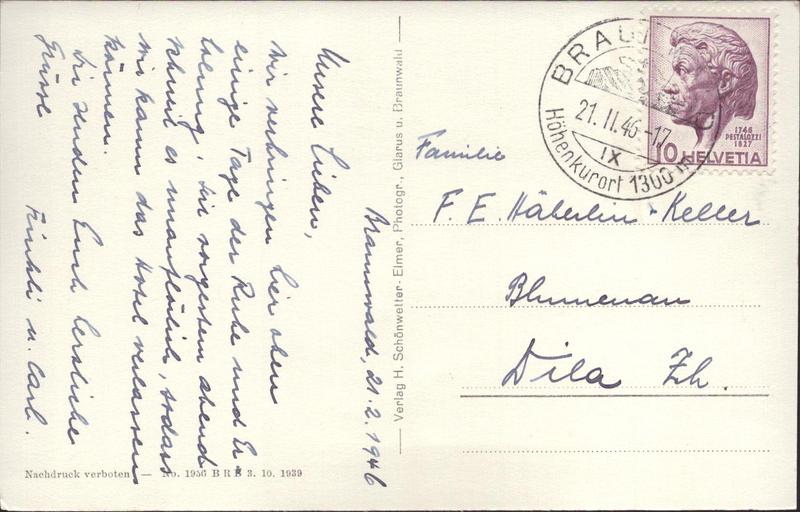 Braunwald, 21.2.1946
Unsere Lieben,
Wir verbringen hier oben
einige Tage der Ruhe und Er-
holung, seit vorgestern abend
schneit es unaufhörlich, sodass
mi kann das Hotel verlassen
können.
Wir senden Euch herzliche
Grüsse
u. Carl.
Nachdruck verboten — No. 1956 BRB 3. 10. 1939
Verlag H. Schönwetter-Elmer, Photogr., Glarus u. Braunwald
BRAU
21.II.46-17
IX
Höhenkurort 1300 m
1746
PESTALOZZI
1827
10 HELVETIA
Familie
F. E. Häberlin-Keller
Blumenau
Dila Zh.